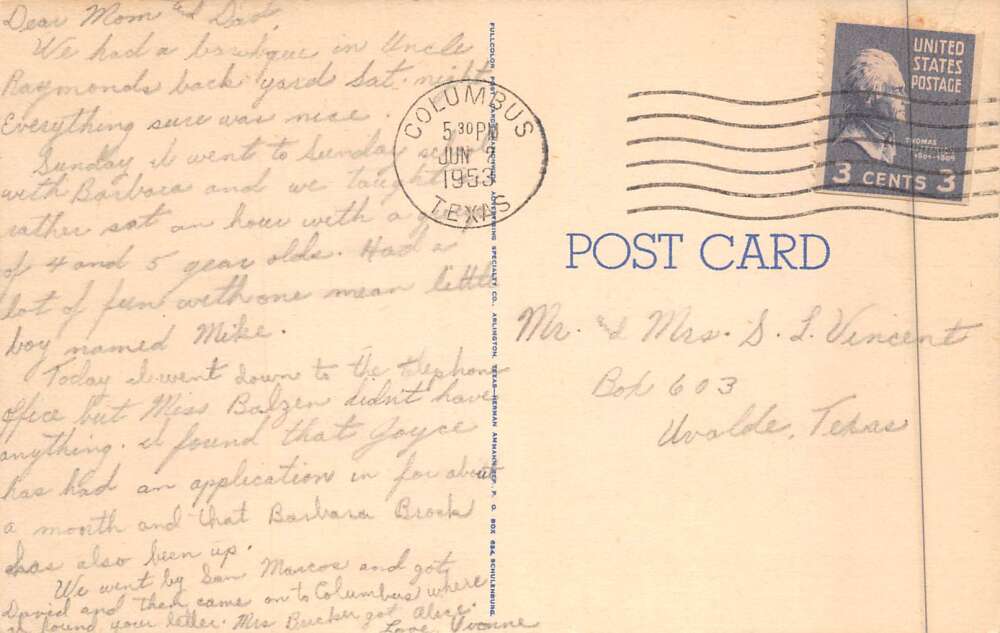 Dear Mom & Dad,
We had a barbque in Uncle
Raymonds back yard Sat. night
Everything sure was nice.
Sunday I went to Sunday school
with Barbara and we taught
rather sat an hour with a
of 4 and 5 year olds. Had a
lot of fun with one mean little
boy named Mike.
Today I went down to the telephone
office but Miss Balzen didn't have
anything. I found that Joyce
has had an application in for about
a month and that Barbara Brock
has also been up.
We went by San Marcos and got
David and then came on to Columbus where
I found your letter. Mrs Bucker got Alice.
Love, Yvonne
COLUMBUS
5 30 PM
JUN 2
1953
TEXAS
UNITED
STATES
POSTAGE
THOMAS
3 CENTS 3
POST CARD
Mr. & Mrs. S. L. Vincent
Box 603
Uvalde, Texas